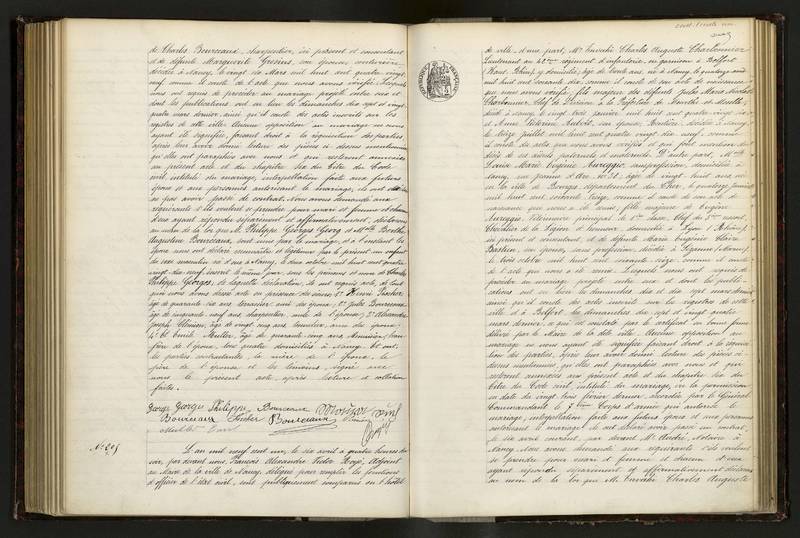 de Charles Bourceaux, charpentier, ici présent et consentant
et de défunte Marguerite Gressius, son épouse couturière,
décédée à Nancy, le vingt six Mars mil huit cent quatre vingt
neuf comme il conste de l'acte que nous avons vérifié. Lesquels
nous ont requis de procéder au mariage projeté entre eux et
dont les publications ont eu lieu les dimanches dix sept et vingt
quatre mars dernier, ainsi qu'il conste des actes inscrits sur les
registres de cette ville. Aucune opposition au mariage ne nous
ayant été signifiée, faisant droit à la réquisition des parties,
après leur avoir donné lecture des pièces ci-dessus mentionnées
qu'elles ont paraphées avec nous et qui resteront annexées
au présent acte et du chapitre six du Titre du Code
civil, intitulé du mariage, interpellation faite aux futurs
époux et aux personnes autorisant le mariage, ils ont déclaré
ne pas avoir passé de contrat. Nous avons demandé aux
requérants s'ils veulent se prendre pour mari et femme et chacun
d'eux ayant répondu séparément et affirmativement, déclarons
au nom de la loi que M. Philippe Georges Georg et Melle Berthe
Augustine Bourceaux, sont unis par le mariage, et à l'instant les
époux nous ont déclaré reconnaître et légitimer par le présent un enfant
du sexe masculin né d'eux à Nancy, le deux octobre mil huit cent quatre
vingt dix neuf, inscrit le même jour, sous les prénoms et nom de Charles
Philippe Georges, de laquelle déclaration, ils ont requis acte, de tout
quoi nous avons dressé acte en présence des sieurs 1° Henri Fischer
âgé de quarante six ans charpentier, ami des époux; 2° Jules Bourceaux
âgé de cinquante neuf ans charpentier, oncle de l'épouse; 3° Alexandre
Joseph Clément, âgé de vingt cinq ans, tourneur, ami des époux;
4° Emile Muller, âgé de quarante cinq ans, menuisier, beau
frère de l'époux, tous quatre domiciliés à Nancy. Et ont,
les parties contractantes, la mère de l'époux, le
père de l'épouse et les témoins, signé avec
nous le présent acte, après lecture et collation
faites.
Georg Georges Philippe Bourceaux
Bourceaux Fischer Bourceaux
Muller
N° 205
L'an mil neuf cent un, le six avril à quatre heures du
soir, par devant nous, François Alexandre Victor Boyé, Adjoint
au Maire de la ville de Nancy, délégué pour remplir les fonctions
d'officier de l'état civil, sont publiquement comparus en l'hôtel
de ville, d'une part, Mr Charles Auguste Charbonnier
Lieutenant au 42ème régiment d'infanterie, en garnison à Belfort
(Haut Rhin) y domicilié, âgé de trente ans, né à Nancy, le quatorze août
mil huit cent soixante dix, comme il conste de son acte de naissance,
que nous avons vérifié, fils majeur des défunts Jules Marie Nicolas
Charbonnier, Chef de Division à la Préfecture de Meurthe et Moselle,
décédé à Nancy, le vingt trois janvier mil huit cent quatre vingt six
et Anne Victorine son épouse, Rentière, décédée à Nancy,
le seize juillet mil huit cent quatre vingt dix neuf, comme
il conste des actes que nous avons vérifiés et qui font mention du
décès de ses aïeuls paternels et maternels. D'autre part, Melle
Louise Marie Eugénie Aureggio, sans profession, domiciliée à
Nancy, rue Jeanne d'Arc, n° 31, âgée de vingt huit ans, née
en la ville de Bourges, département du Cher, le quatorze janvier
mil huit cent soixante treize, comme il conste de son acte de
naissance qui nous a été remis, fille majeure de Eugène
Aureggio, Vétérinaire principal de 1re classe, Chef du 5ème ressort,
Chevalier de la Légion d'honneur, domicilié à Lyon (Rhône),
ici présent et consentant et de défunte Marie Eugénie Claire
Bastien, son épouse, sans profession, décédée à Sézanne (Marne),
le trois octobre mil huit cent soixante seize, comme il conste
de l'acte qui nous a été remis. Lesquels nous ont requis de
procéder au mariage projeté entre eux et dont les publi-
cations ont eu lieu les dimanches dix et dix sept mars dernier
ainsi que il conste des actes inscrits sur les registres de cette
ville et à Belfort, les dimanches dix sept et vingt quatre
mars dernier, ce qui est constaté par le certificat en bonne forme
délivré par le Maire de la dite ville. Aucune opposition au
mariage ne nous ayant été signifiée faisant droit à la réquisi-
tion des parties, après leur avoir donné lecture des pièces ci-
dessus mentionnées, qu'elles ont paraphées avec nous et qui
resteront annexées au présent acte et du chapitre six du
Titre du Code civil intitulé du mariage, vu la permission
en date du vingt trois février dernier accordée par le Général
Commandant le 7ème Corps d'armée qui autorise le
mariage, interpellation faite aux futurs époux et aux personnes
autorisant le mariage ils ont déclaré avoir passé un contrat,
le six avril courant, par devant Me André, Notaire à
Nancy. Nous avons demandé aux requérants s'ils veulent
se prendre pour mari et femme et chacun d'eux
ayant répondu séparément et affirmativement déclarons
au nom de la loi que M. Charles Auguste